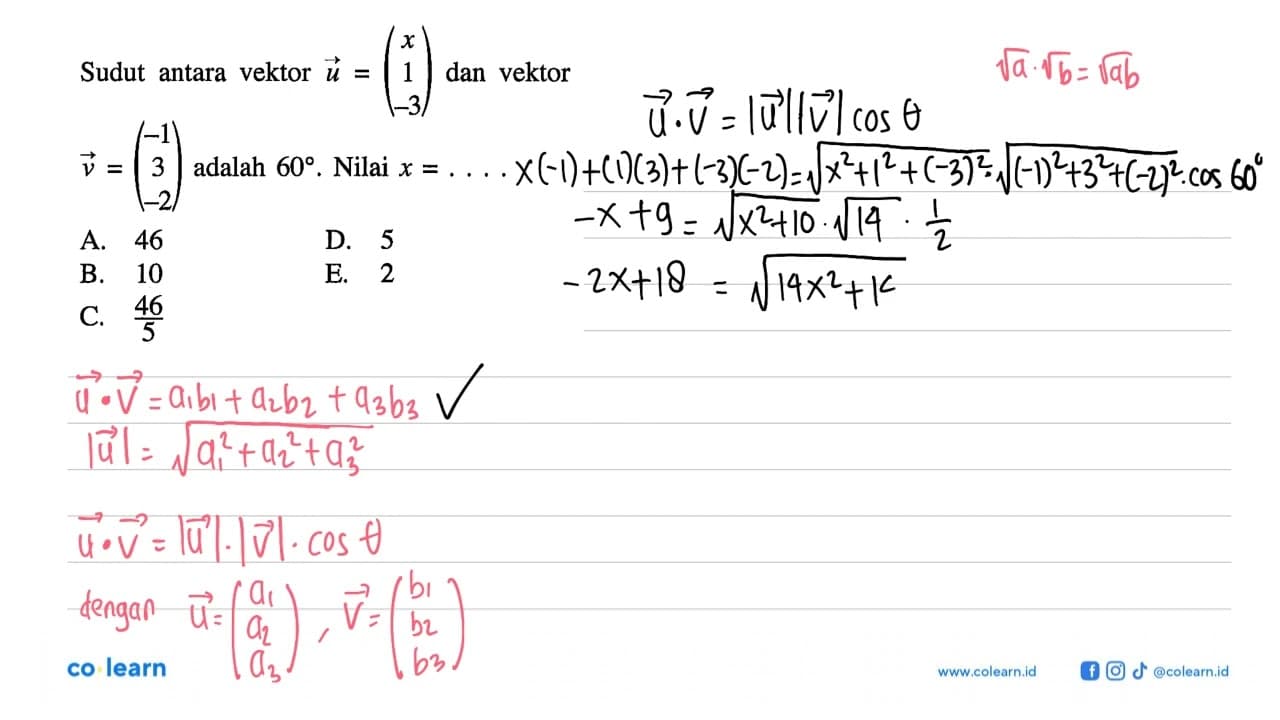 Sudut antara vektor u⃗ = (x 1 –3) dan vektor
v⃗ = (–1 3 –2) adalah 60°. Nilai x = . . . .
A. 46
B. 10
C. 46/5
D. 5
E. 2
√a·√b = √ab
u⃗·v⃗ = |u⃗||v⃗| cos θ
x(-1)+(1)(3)+(-3)(-2) = √x²+1²+(-3)² · √(-1)²+3²+(-2)² · cos 60°
-x+9 = √x²+10 · √14 · 1/2
-2x+18 = √14x²+1
u⃗·v⃗ = a₁b₁ + a₂b₂ + a₃b₃ ✓
|u⃗| = √a₁²+a₂²+a₃²
u⃗·v⃗ = |u⃗|·|v⃗|·cos θ
dengan u⃗ = (a₁ a₂ a₃), v⃗ = (b₁ b₂ b₃)
co learn
www.colearn.id
@colearn.id